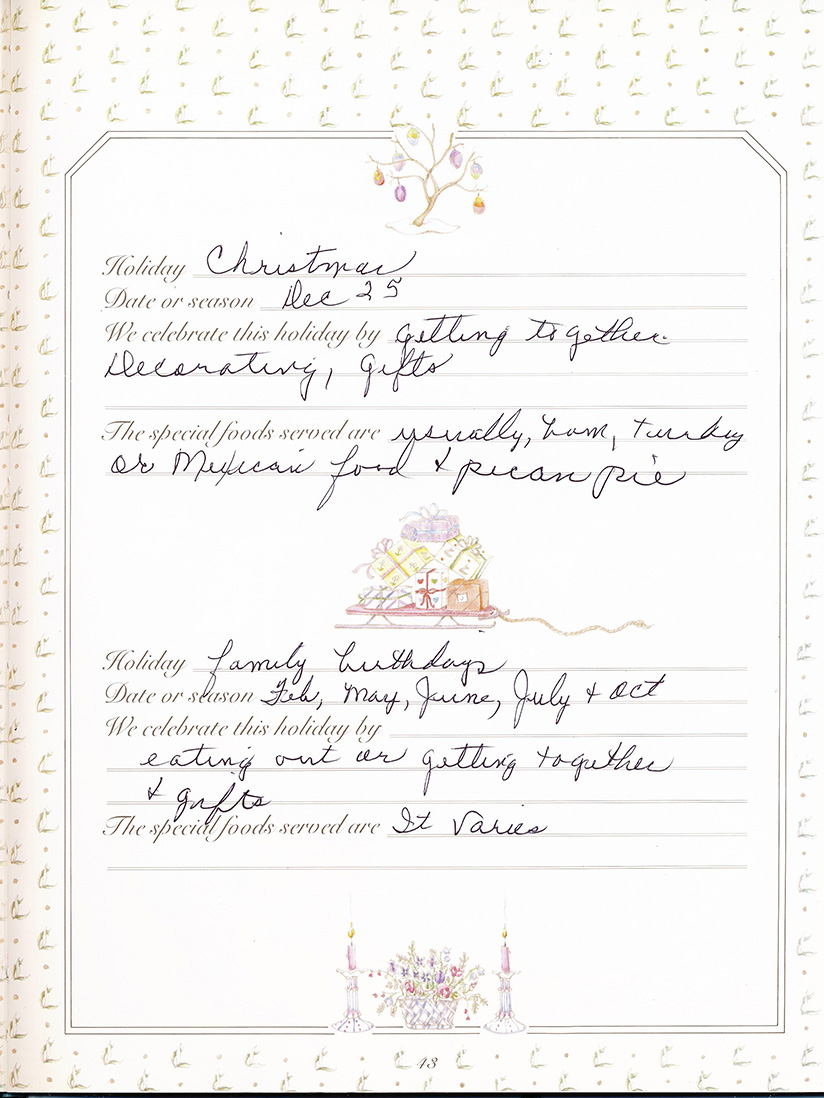 Holiday Christmas
Date or season Dec 25
We celebrate this holiday by getting together.
Decorating, gifts
The special foods served are usually, ham, turkey
or Mexican food & pecan pie
Holiday family birthdays
Date or season Feb, May, June, July & Oct
We celebrate this holiday by
eating out or getting together
& gifts
The special foods served are It varies
43